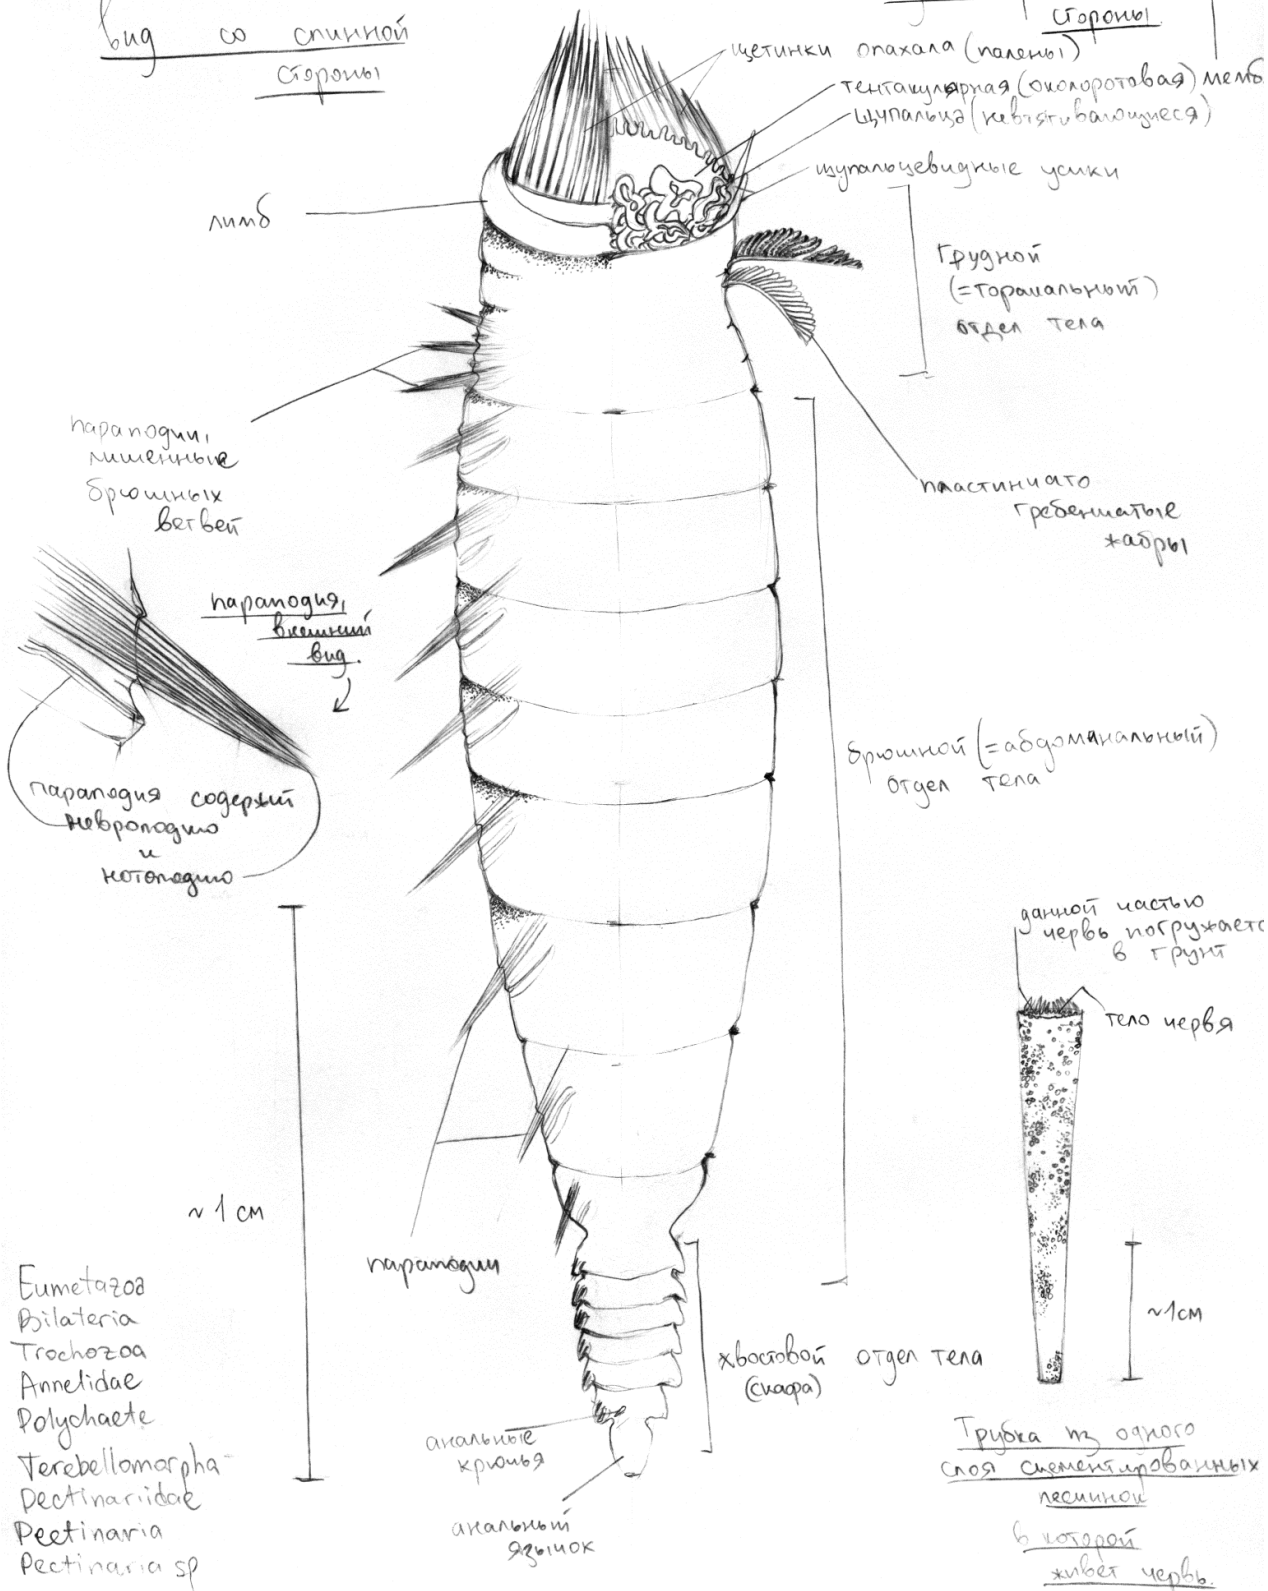 вид со спинной
стороны
стороны
щетинки опахала (палены)
тентакулярная (околоротовая) мемб
щупальца (невтягивающиеся)
щупальцевидные усики
лимб
грудной
(=торакальный)
отдел тела
параподии,
лишенные
брюшных
ветвей
пластинчато
гребенчатые
жабры
параподия,
внешний
вид.
параподия содержит
невроподию
и
нотоподию
брюшной (=абдоминальный)
отдел тела
данной частью
червь погружаетс
в грунт
тело червя
~1 см
параподии
~1см
хвостовой отдел тела
(скафа)
анальные
крючья
анальный
язычок
Eumetazoa
Bilateria
Trochozoa
Annelidae
Polychaete
Terebellomorpha
Pectinariidae
Pectinaria
Pectinaria sp
Трубка из одного
слоя сцементированных
песчинок
в которой
живет червь.